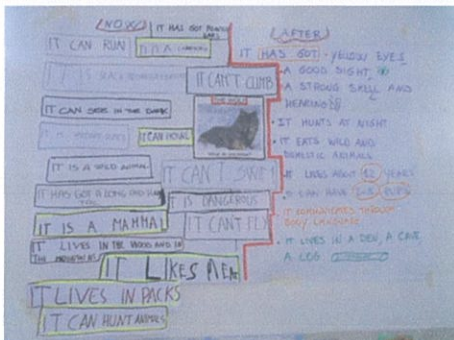 NOW
IT HAS GOT POINTED EARS
IT CAN RUN
IT IS A CARNIVORE
IT IS
IT CAN'T CLIMB
IT CAN SEE IN THE DARK
IT CAN HOWL
IT IS A WILD ANIMAL
IT CAN'T SWIM
IT HAS GOT A LONG AND
TAIL
IT IS DANGEROUS
IT IS A MAMMAL
IT CAN'T FLY
IT LIVES IN THE WOOD AND IN
THE MOUNTAINS
IT LIKES MEAT
IT LIVES IN PACKS
IT CAN HUNT ANIMALS
THE WOLF
AFTER
IT HAS GOT - YELLOW EYES
- A GOOD SIGHT
- A STRONG SMELL AND
HEARING
• IT HUNTS AT NIGHT
• IT EATS WILD AND
DOMESTIC ANIMALS
IT LIVES ABOUT 12 YEARS
CAN HAVE PUPS
• IT COMMUNICATES THROUGH
BODY LANGUAGE
• IT LIVES IN A DEN, A CAVE
A LOG